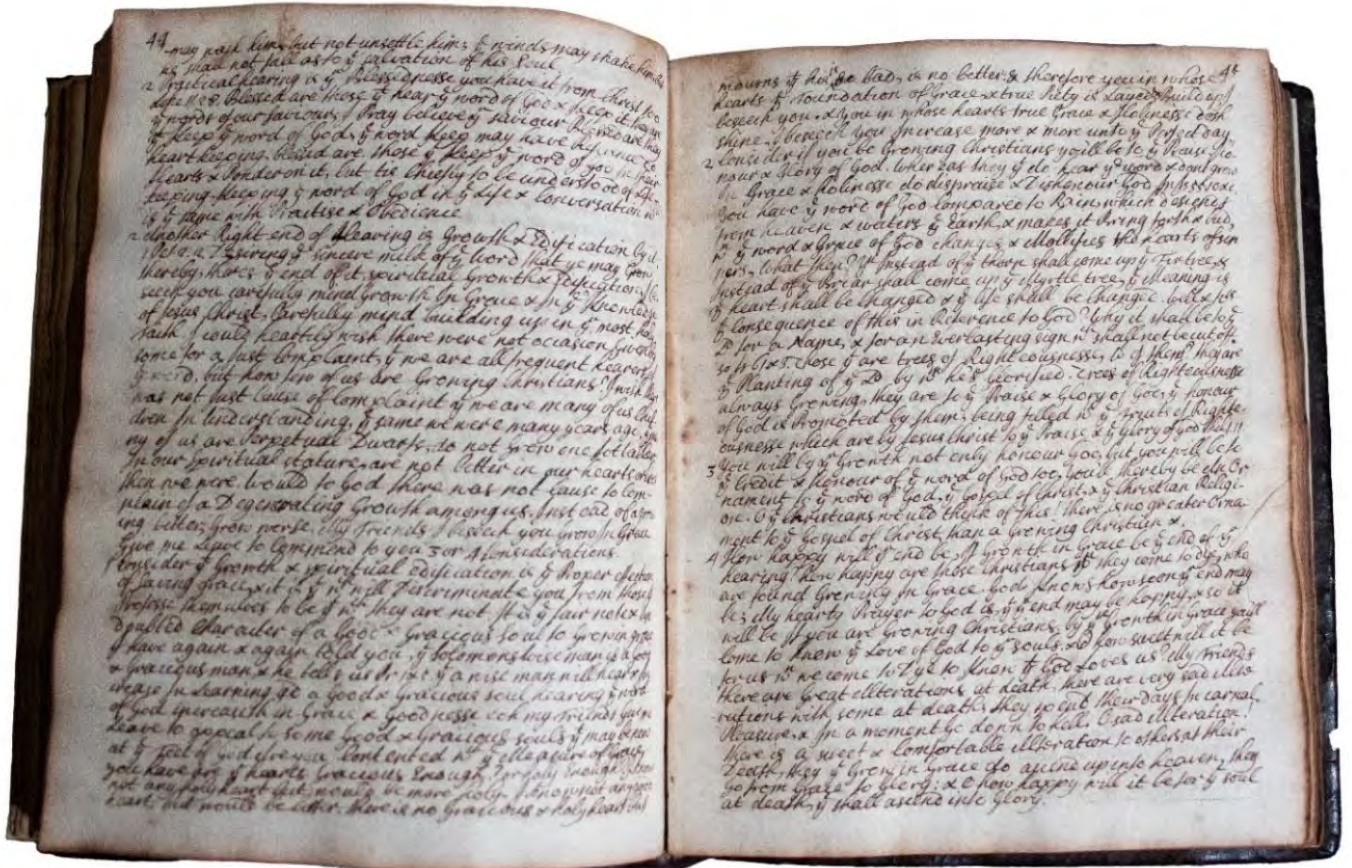 44
may push him, but not unsettle him; ye winds may shake him, but
he shall not fall as to ye salvation of his Soul
2 Practical hearing is ye Blessednesse you have it from Christ too
28. Blessed are those yt hear ye word of God & keep it, they are
ye words of our saviour, I Pray believe ye saviour Blessed are they
yt keep ye word of God, ye word keep may have Reference to
heart keeping, blessed are those yt keep ye word of you in their
hearts & Ponder on it, but tis Chiefly to be understood of life
keeping, keeping ye word of God in ye Life & Conversation
is ye same with Practise & Obedience
Another Right end of Hearing is Growth & Edification
Desiring ye sincere milk of ye Word that ye may Grow
thereby, there's ye end of it spiritual Growth & Edification, I be-
seech you carefully mind Growth In Grace & In ye Knowledge
of Jesus Christ, Carefully mind building up in ye most holy
faith. I could heartily wish there were not occasion given by
some for a Just Complaint, yt we are all frequent hearers of
ye word, but how few of us are Growing Christians? I wish there
was not Just Cause of Complaint yt we are many of us Chil-
dren In Understanding, ye same we were many years ago,
ny of us are Perpetual Dwarfs, do not Grow one Jot taller
In our spiritual stature, are not better in our hearts
then we were would to God there was not Cause to Com-
plain of a Degenerating Growth among us, Instead of Grow
ing better, Grow worse. My Friends I beseech you Grow In Grace
Give me Leave to Commend to you 3 or 4 Considerations.
1 Consider ye Growth & spiritual Edification is ye Proper
of saving Grace, & it is yt wch will Discriminate you from those yt
Professe themselves to be yt wch they are not It is ye fair note & un
doubted Character of a Good & Gracious Soul to Grow in Grace
I have again & again told you, yt Solomons wise man is a Good
& Gracious man & he tells us yt a wise man will hear & in
crease In Learning, so a good & Gracious soul hearing ye word
of God increaseth in Grace & Goodnesse my Friends give me
Leave to appeal to some Good & Gracious Souls yt may be now
at ye Feet of God are you Contented wth ye Measure of Grace
you have are yr hearts Gracious Enough, holy Enough, I know
not any holy heart but would be more holy I know not any good
heart but would be better, there is no Gracious & holy heart but
mourns yt his so bad, is no better & therefore you in whose
hearts ye Foundation of Grace & true Piety is Layed, Build up I
beseech you, & you in whose hearts true Grace & Holinesse doth
shine, I beseech you Increase more & more unto ye Perfect day
2 Consider if you be Growing Christians you'll be to ye Praise Ho-
nour & Glory of God, whereas they yt do hear ye word & dont grow
In Grace & Holinesse do dispraise & Dishonour God
You have ye word of God Compared to Rain, which descends
from heaven & waters ye Earth, & makes it Bring forth & bud,
so ye word & Grace of God changes & Mollifies the hearts of sin
ners, What then? Instead of ye thorn shall come up ye Firtree, &
Instead of ye Briar shall come up ye Myrtle tree, ye Meaning is
ye heart shall be changed & ye life shall be changed. but
ye Consequence of this in Reference to God? Why it shall be to ye
Ld for a Name, & for an Everlasting sign wch shall not be cut off.
those yt are trees of Righteousnesse, they are
ye Planting of ye Ld by wch he's Glorified. Trees of Righteousnesse
always Growing, they are to ye Praise & Glory of God, ye honour
of God is Promoted by them, being filled wth ye Fruits of Righte-
ousnesse which are by Jesus Christ to ye Praise & ye Glory of God
3 You will by yr Growth not only honour God, but you will be to
ye Credit & Honour of ye word of God too, you'll thereby be An Or
nament to ye word of God, ye Gospel of Christ, & ye Christian Religi-
on. O yt Christians would think of this! there is no greater Orna
ment to ye Gospel of Christ, than a Growing Christian
4 How happy will yr end be, If Growth in Grace be ye end of yr
hearing? how happy are those Christians wn they come to dye, who
are found Growing In Grace. God knows how soon yr end may
be; My hearty Prayer to God is, yr end may be happy, & so it
will be if you are Growing Christians, by yr Growth in Grace you'll
come to know ye Love of God to yr souls, & O how sweet will it be
for us wn we come to dye to know yt God Loves us? My Friends
there are Great Alterations at death, there are very sad Alte
rations with some at death, they spend their Days In Carnal
Pleasure, & In a moment Go down to hell, O sad Alteration!
there is a sweet & Comfortable Alteration to others at their
Death, they yt Grow in Grace do ascend up into heaven, they
go from Grace to Glory: & O how happy will it be for yr soul
at death, yt shall ascend into Glory.